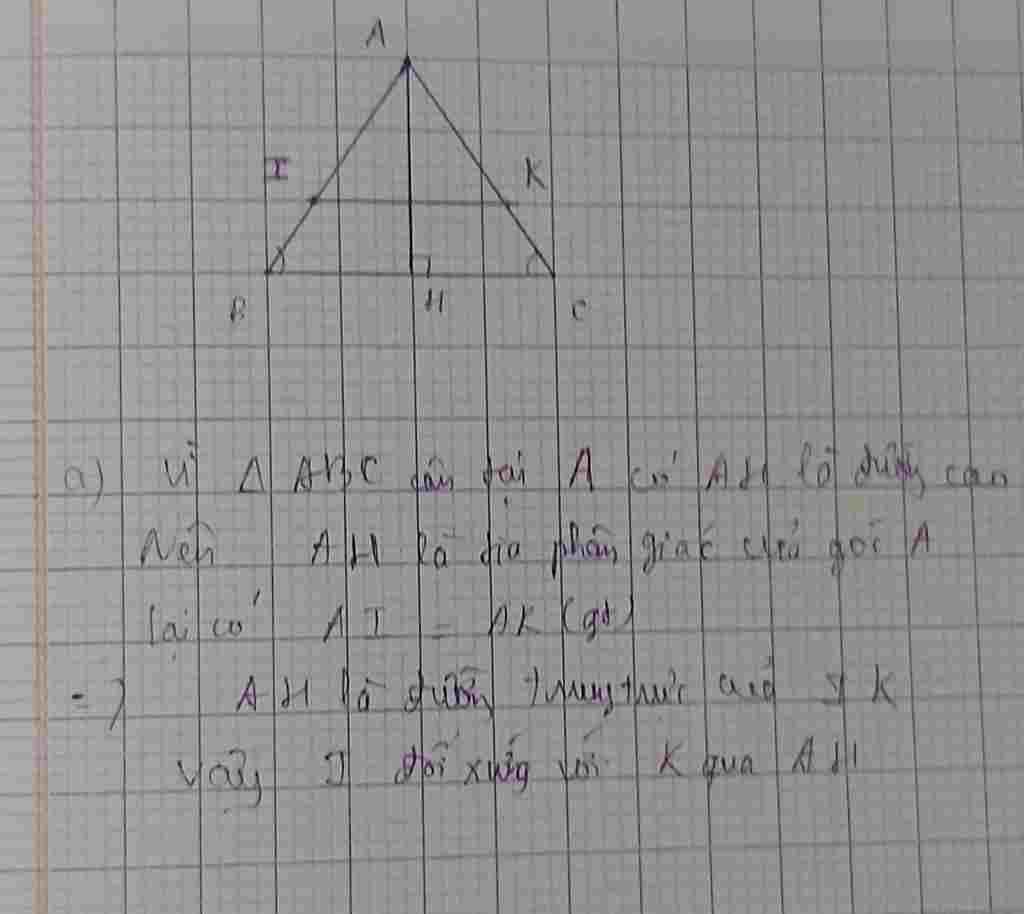 A
I K
B H C
a) Vì Δ ABC cân tại A có AH là đường cao
Nên AH là tia phân giác của góc A
lại có AI = AK (gt)
=) AH là đường trung trực của IK
Vậy I đối xứng với K qua AH